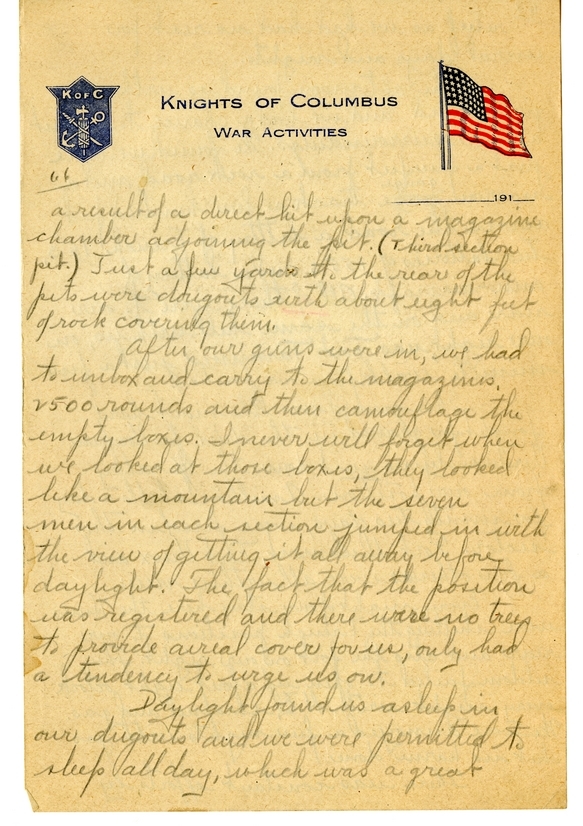 K OF C
KNIGHTS OF COLUMBUS
WAR ACTIVITIES
191
a result of a direct hit upon a magazine
chamber adjoining the pit. (Third section
pit.) Just a few yards to the rear of the
pits were dougouts with about eight feet
of rock covering them.
After our guns were in, we had
to unbox and carry to the magazines,
2500 rounds and then camouflage the
empty boxes. I never will forget when
we looked at those boxes, they looked
like a mountain but the seven
men in each section jumped in with
the view of getting it all away before
daylight. The fact that the position
was registered and there were no trees
to provide aerial cover for us, only had
a tendency to urge us on.
Daylight found us asleep in
our dugouts and we were permitted to
sleep all day, which was a great